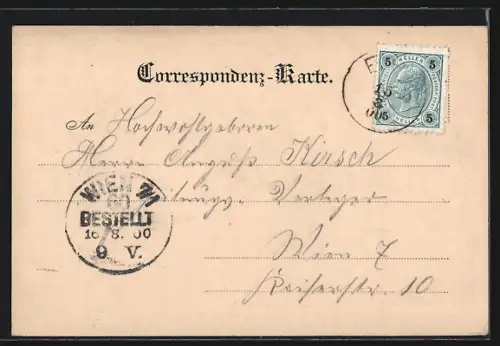 Correspondenz-Karte.
5 5
HELLER
5 5
An Hochwohlgeboren
Herrn August Kirsch
Zeitungs Verleger
Wien 7
Kaiserstr. 10
WIEN 7/1
BESTELLT
16.8.00
9 V.